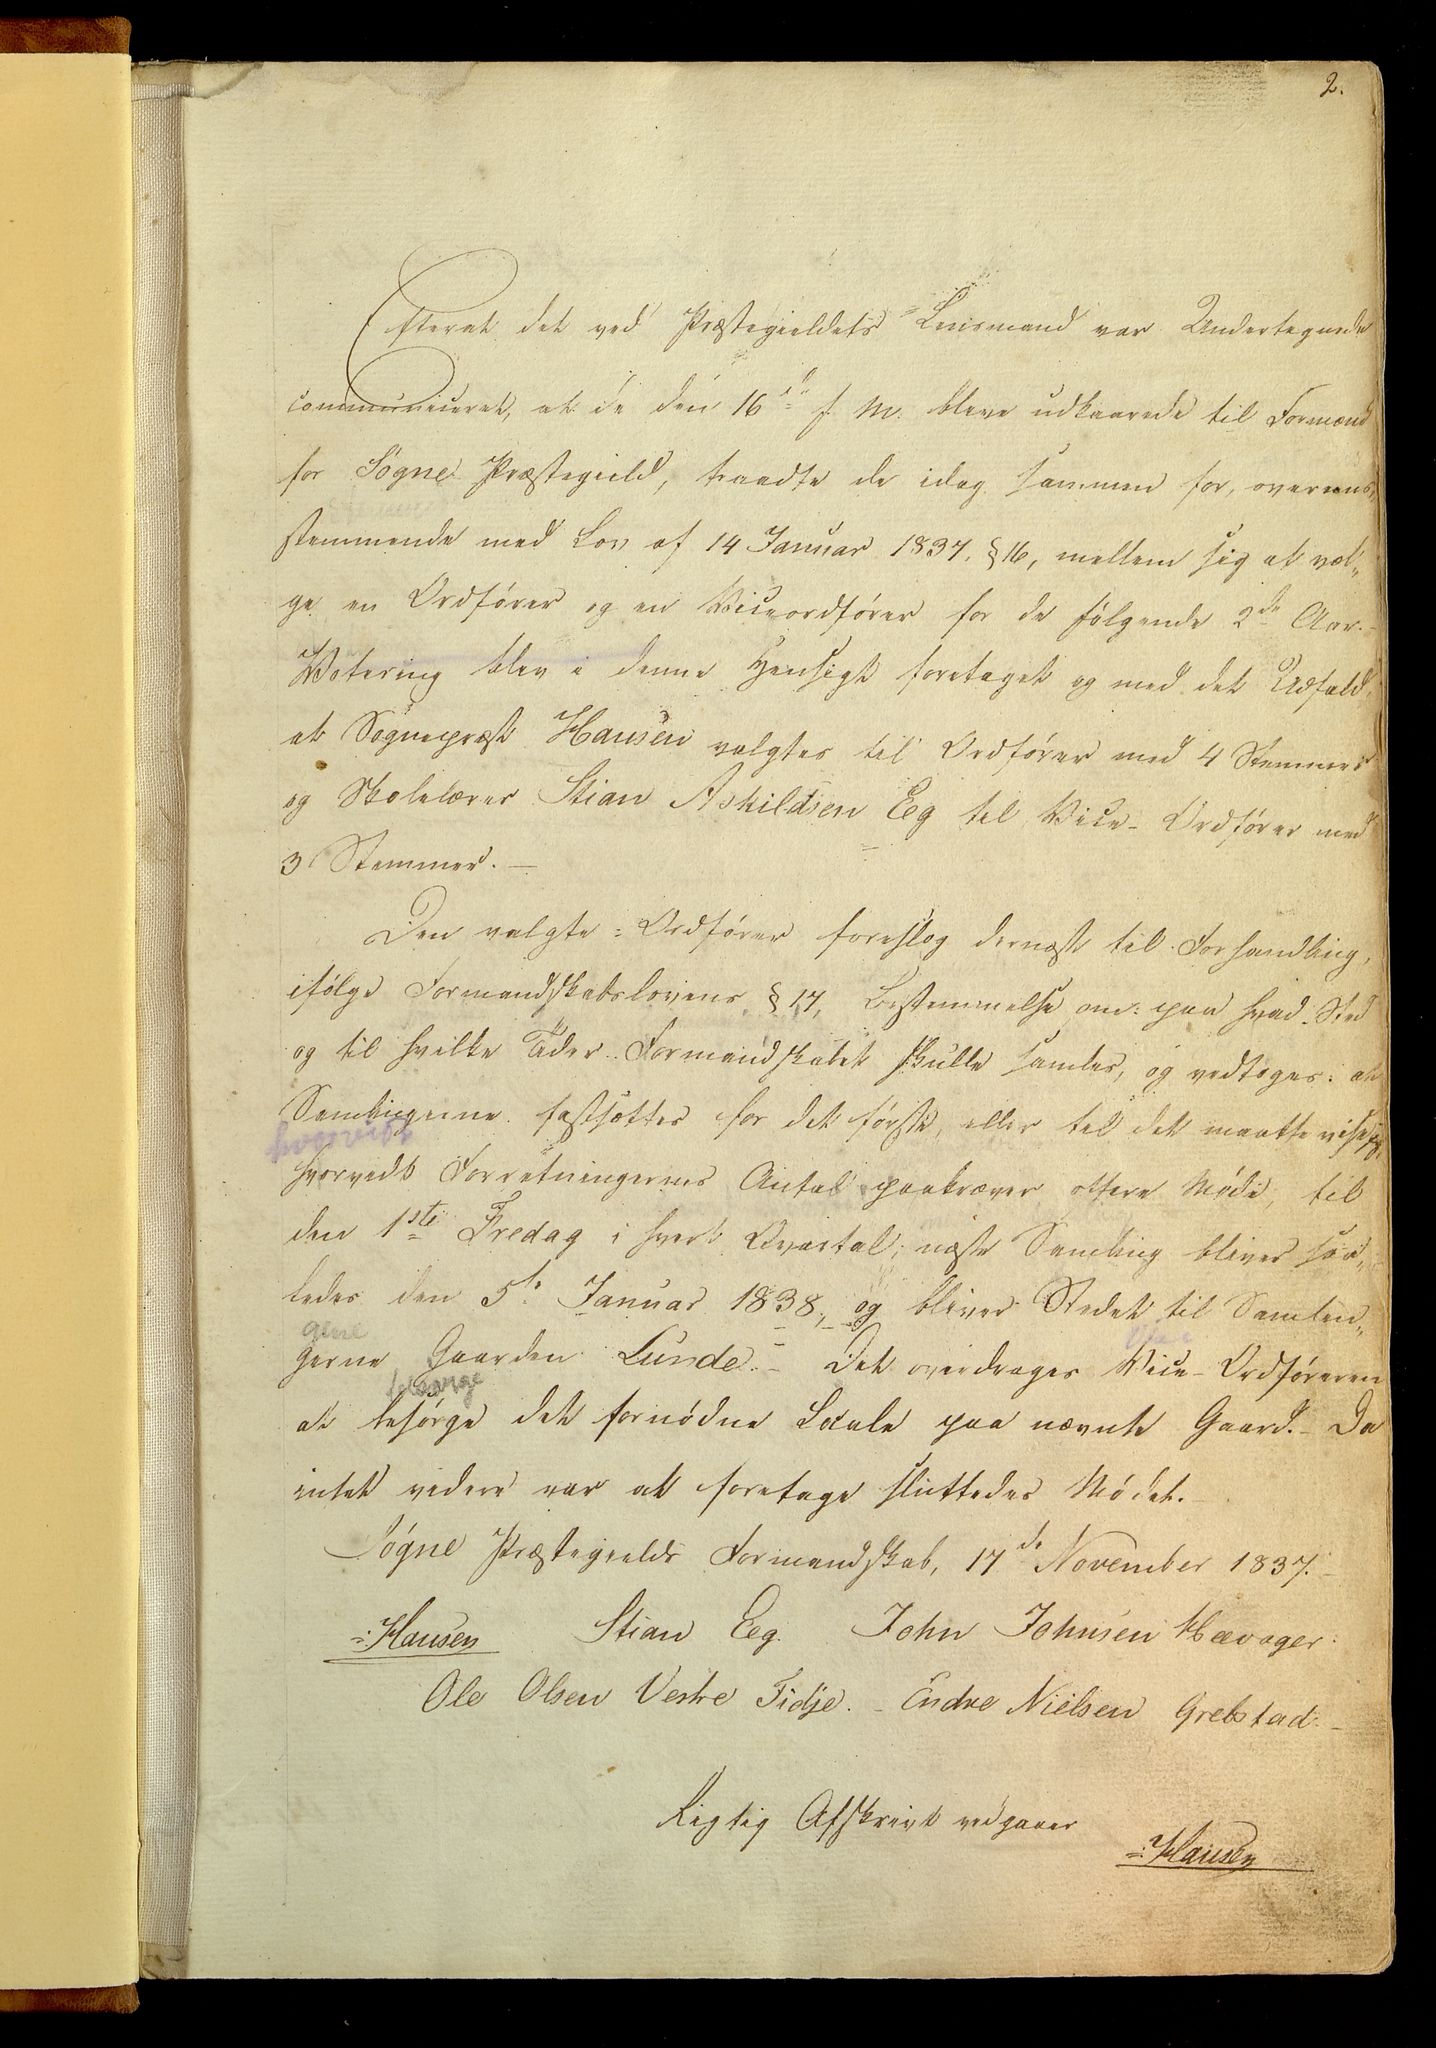 2.
Efterat det ved Præstegieldets Lensmand var Undertegnede
communiceret, at de den 16de f. M. bleve udkaarede til Formænd
for Søgne Præstegield, traadte de idag sammen for, overeens,,
stemmende med Lov af 14 Januar 1837. § 16, mellem sig at væl,,
ge en Ordfører og en Viceordfører for de følgende 2de Aar.-
Votering blev i denne Hensigt foretaget og med det Udfald
at Sognepræst Hansen valgtes til Ordfører med 4 Stemmer
og Skolelærer Stian Askildsen Eg til Vice-Ordfører med
3 Stemmer.-
Den valgte Ordfører foreslog dernæst til Forhandling,
ifølge Formandskabslovens § 17, Bestemmelse om: paa hvad Sted
og til hvilke Tider Formandskabet skulle samles, og vedtoges: at
Samlingerne fastsættes for det første, eller til det maatte vise sig,
hvorvidt
hvorvidt Forretningernes Antal paakræver oftere Møde, til
den 1ste Fredag i hvert Qvartal; næste Samling bliver saa,,
ledes den 5te Januar 1838, og bliver Stedet til Samlin,,
gene
gerne Gaarden Lunde.- Det overdrages Vice-Ordføreren
besørge
at besørge det fornødne Locale paa nævnte Gaard.- Da
intet videre var at foretage sluttedes Mødet.-
Søgne Præstegields Formandskab, 17de November 1837.-
Hansen Stian Eeg. John Johnsen Høvager.
Ole Olsen Vestre Tidje.- Endre Nielsen Grebstad.-
Rigtig Afskrivt vedgaaer
Hansen